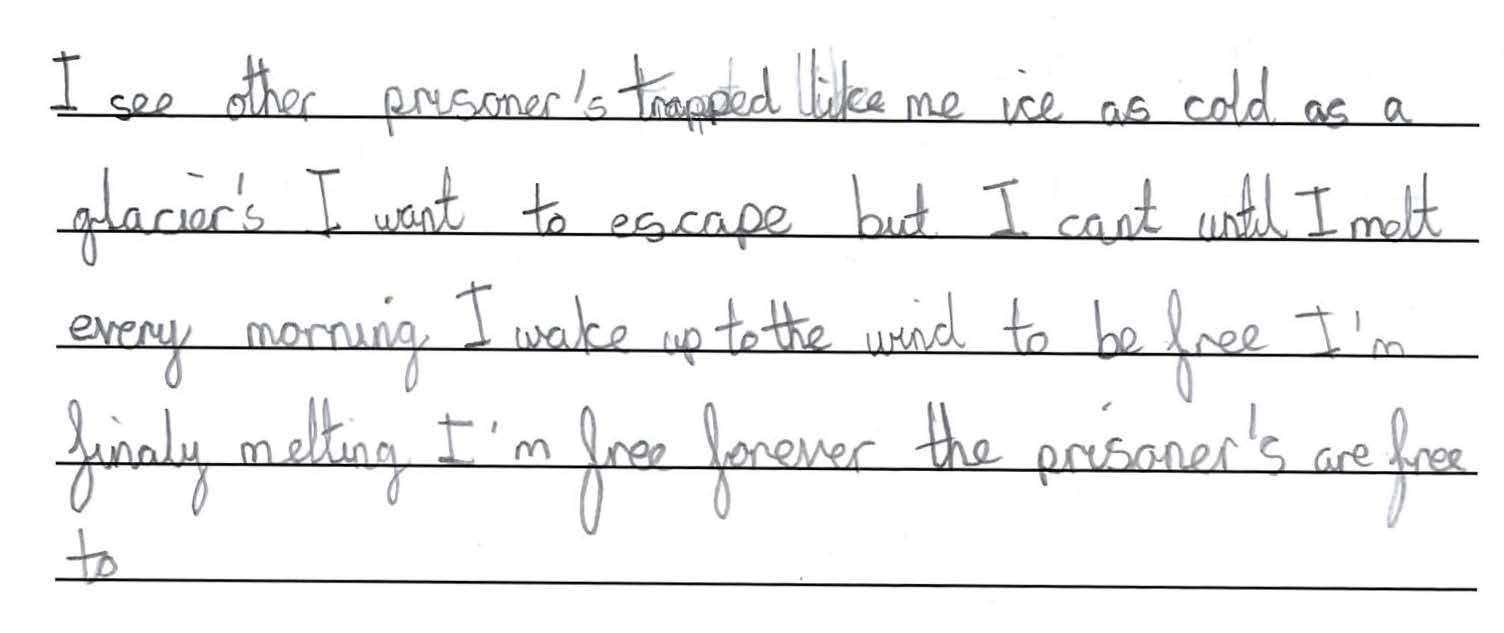 I see other prisoner's trapped like me ice as cold as a
glacier's I want to escape but I cant until I melt
every morning I wake up to the wind to be free I'm
finaly melting I'm free forever the prisoner's are free
to